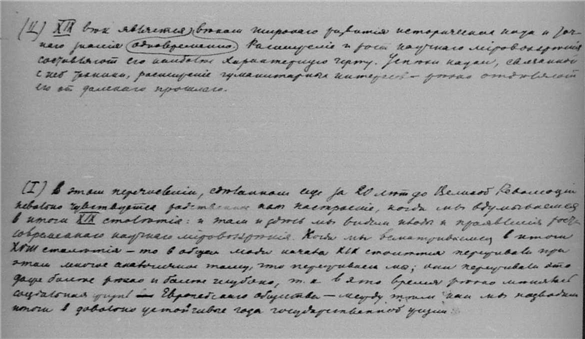 (II) XIX век является веком широкого развития исторических наук и точ-
ного знания одновременно. Расширение и рост научного мировоззрения
составляют его наиболее характерную черту. Успехи науки, связанной
с ней техники, расширение гуманитарных интересов – резко отделяют
его от далекого прошлого.
(I) В этом перечислении, сделанном еще за 20 лет до Великой Революции
невольно чувствуется родственное нам настроение, когда мы вдумываемся
в итоги XIX столетия: и там и здесь мы видим и проявления роста
современного научного мировоззрения. Когда мы всматриваемся в итоги
XVIII столетия – то в общем люди начала XIX столетия переживали при
этом многое аналогичное тому, что переживаем мы; они переживали это
даже более резко и более глубоко, т. к. в это время резко менялась
социальная Европейского общества – между тем как мы подводим
итоги в довольно устойчивые года государственной жизни.